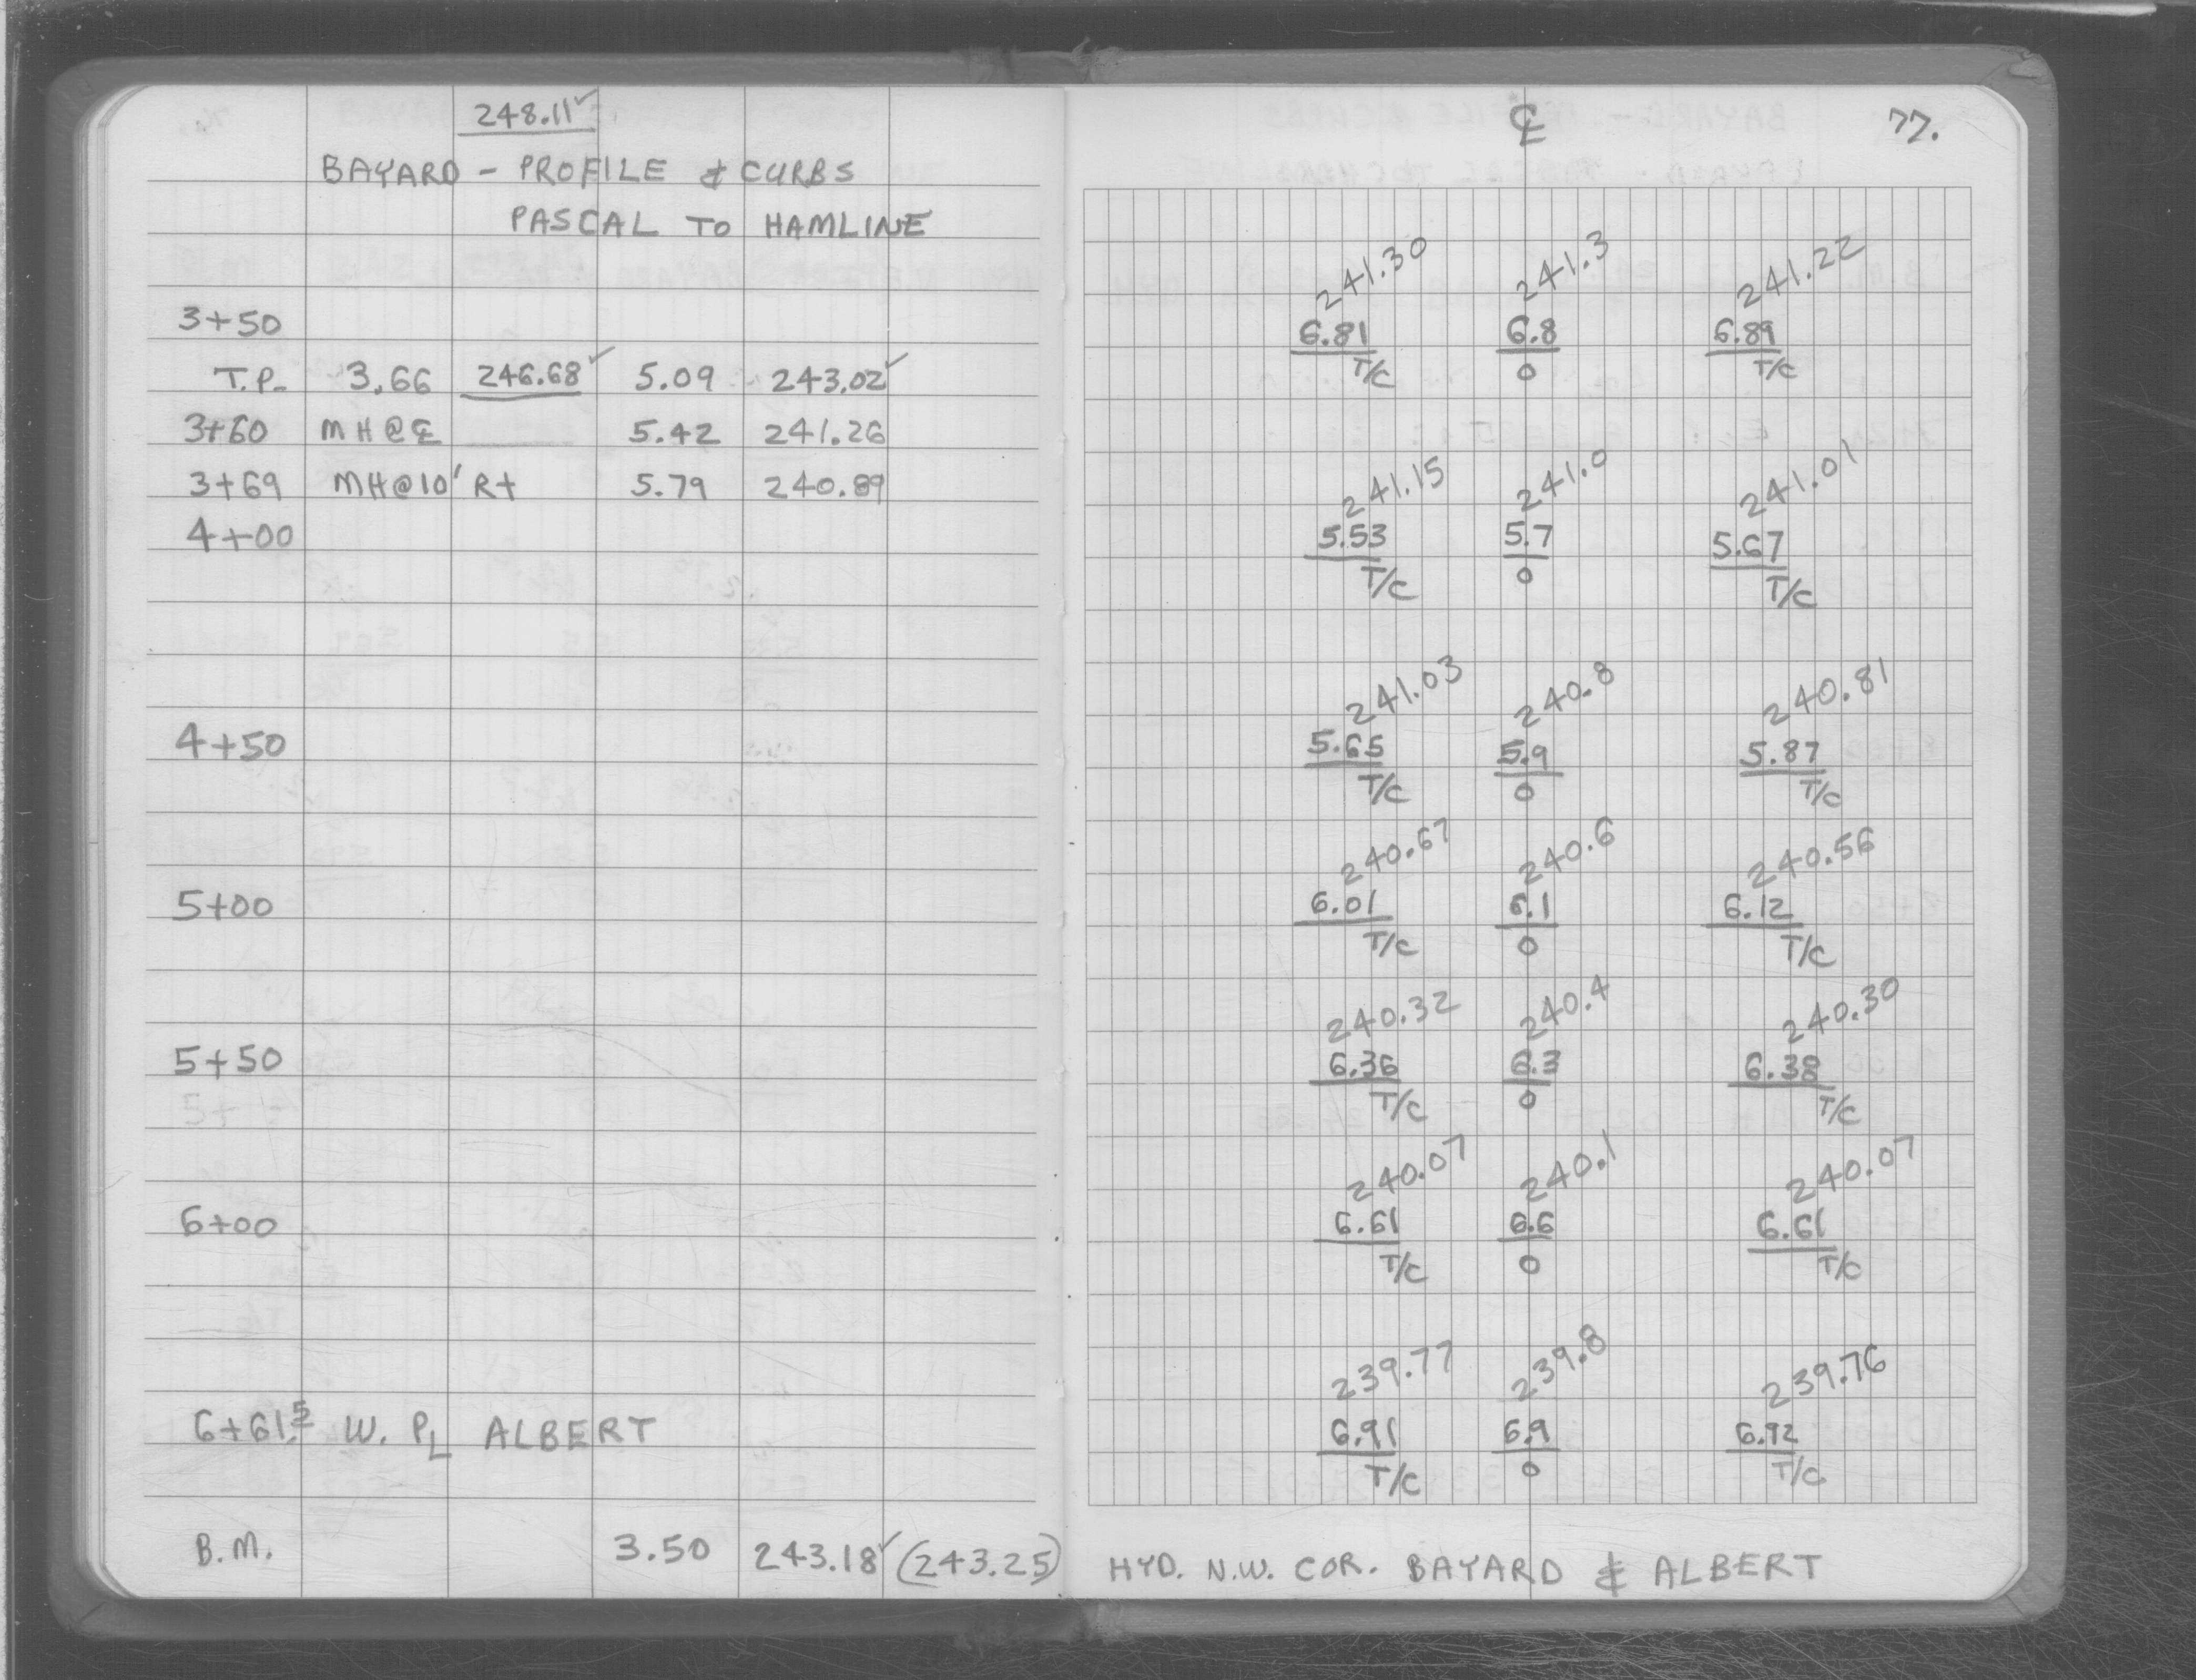 248.11✓
BAYARD - PROFILE & CURBS
PASCAL TO HAMLINE
3+50
T.P. 3.66 246.68✓ 5.09 243.02✓
3+60 MH@℄ 5.42 241.26
3+69 MH@10' Rt 5.79 240.89
4+00
4+50
5+00
5+50
6+00
6+61.5 W. PL ALBERT
B.M. 3.50 243.18✓ (243.25)
℄ 77.
241.30 241.3 241.22
6.81 6.8 6.89
T/C 0 T/C
241.15 241.0 241.01
5.53 5.7 5.67
T/C 0 T/C
241.03 240.8 240.81
5.65 5.9 5.87
T/C 0 T/C
240.67 240.6 240.56
6.01 6.1 6.12
T/C 0 T/C
240.32 240.4 240.30
6.36 6.3 6.38
T/C 0 T/C
240.07 240.1 240.07
6.61 6.6 6.61
T/C 0 T/C
239.77 239.8 239.76
6.91 6.9 6.92
T/C 0 T/C
HYD. N.W. COR. BAYARD & ALBERT